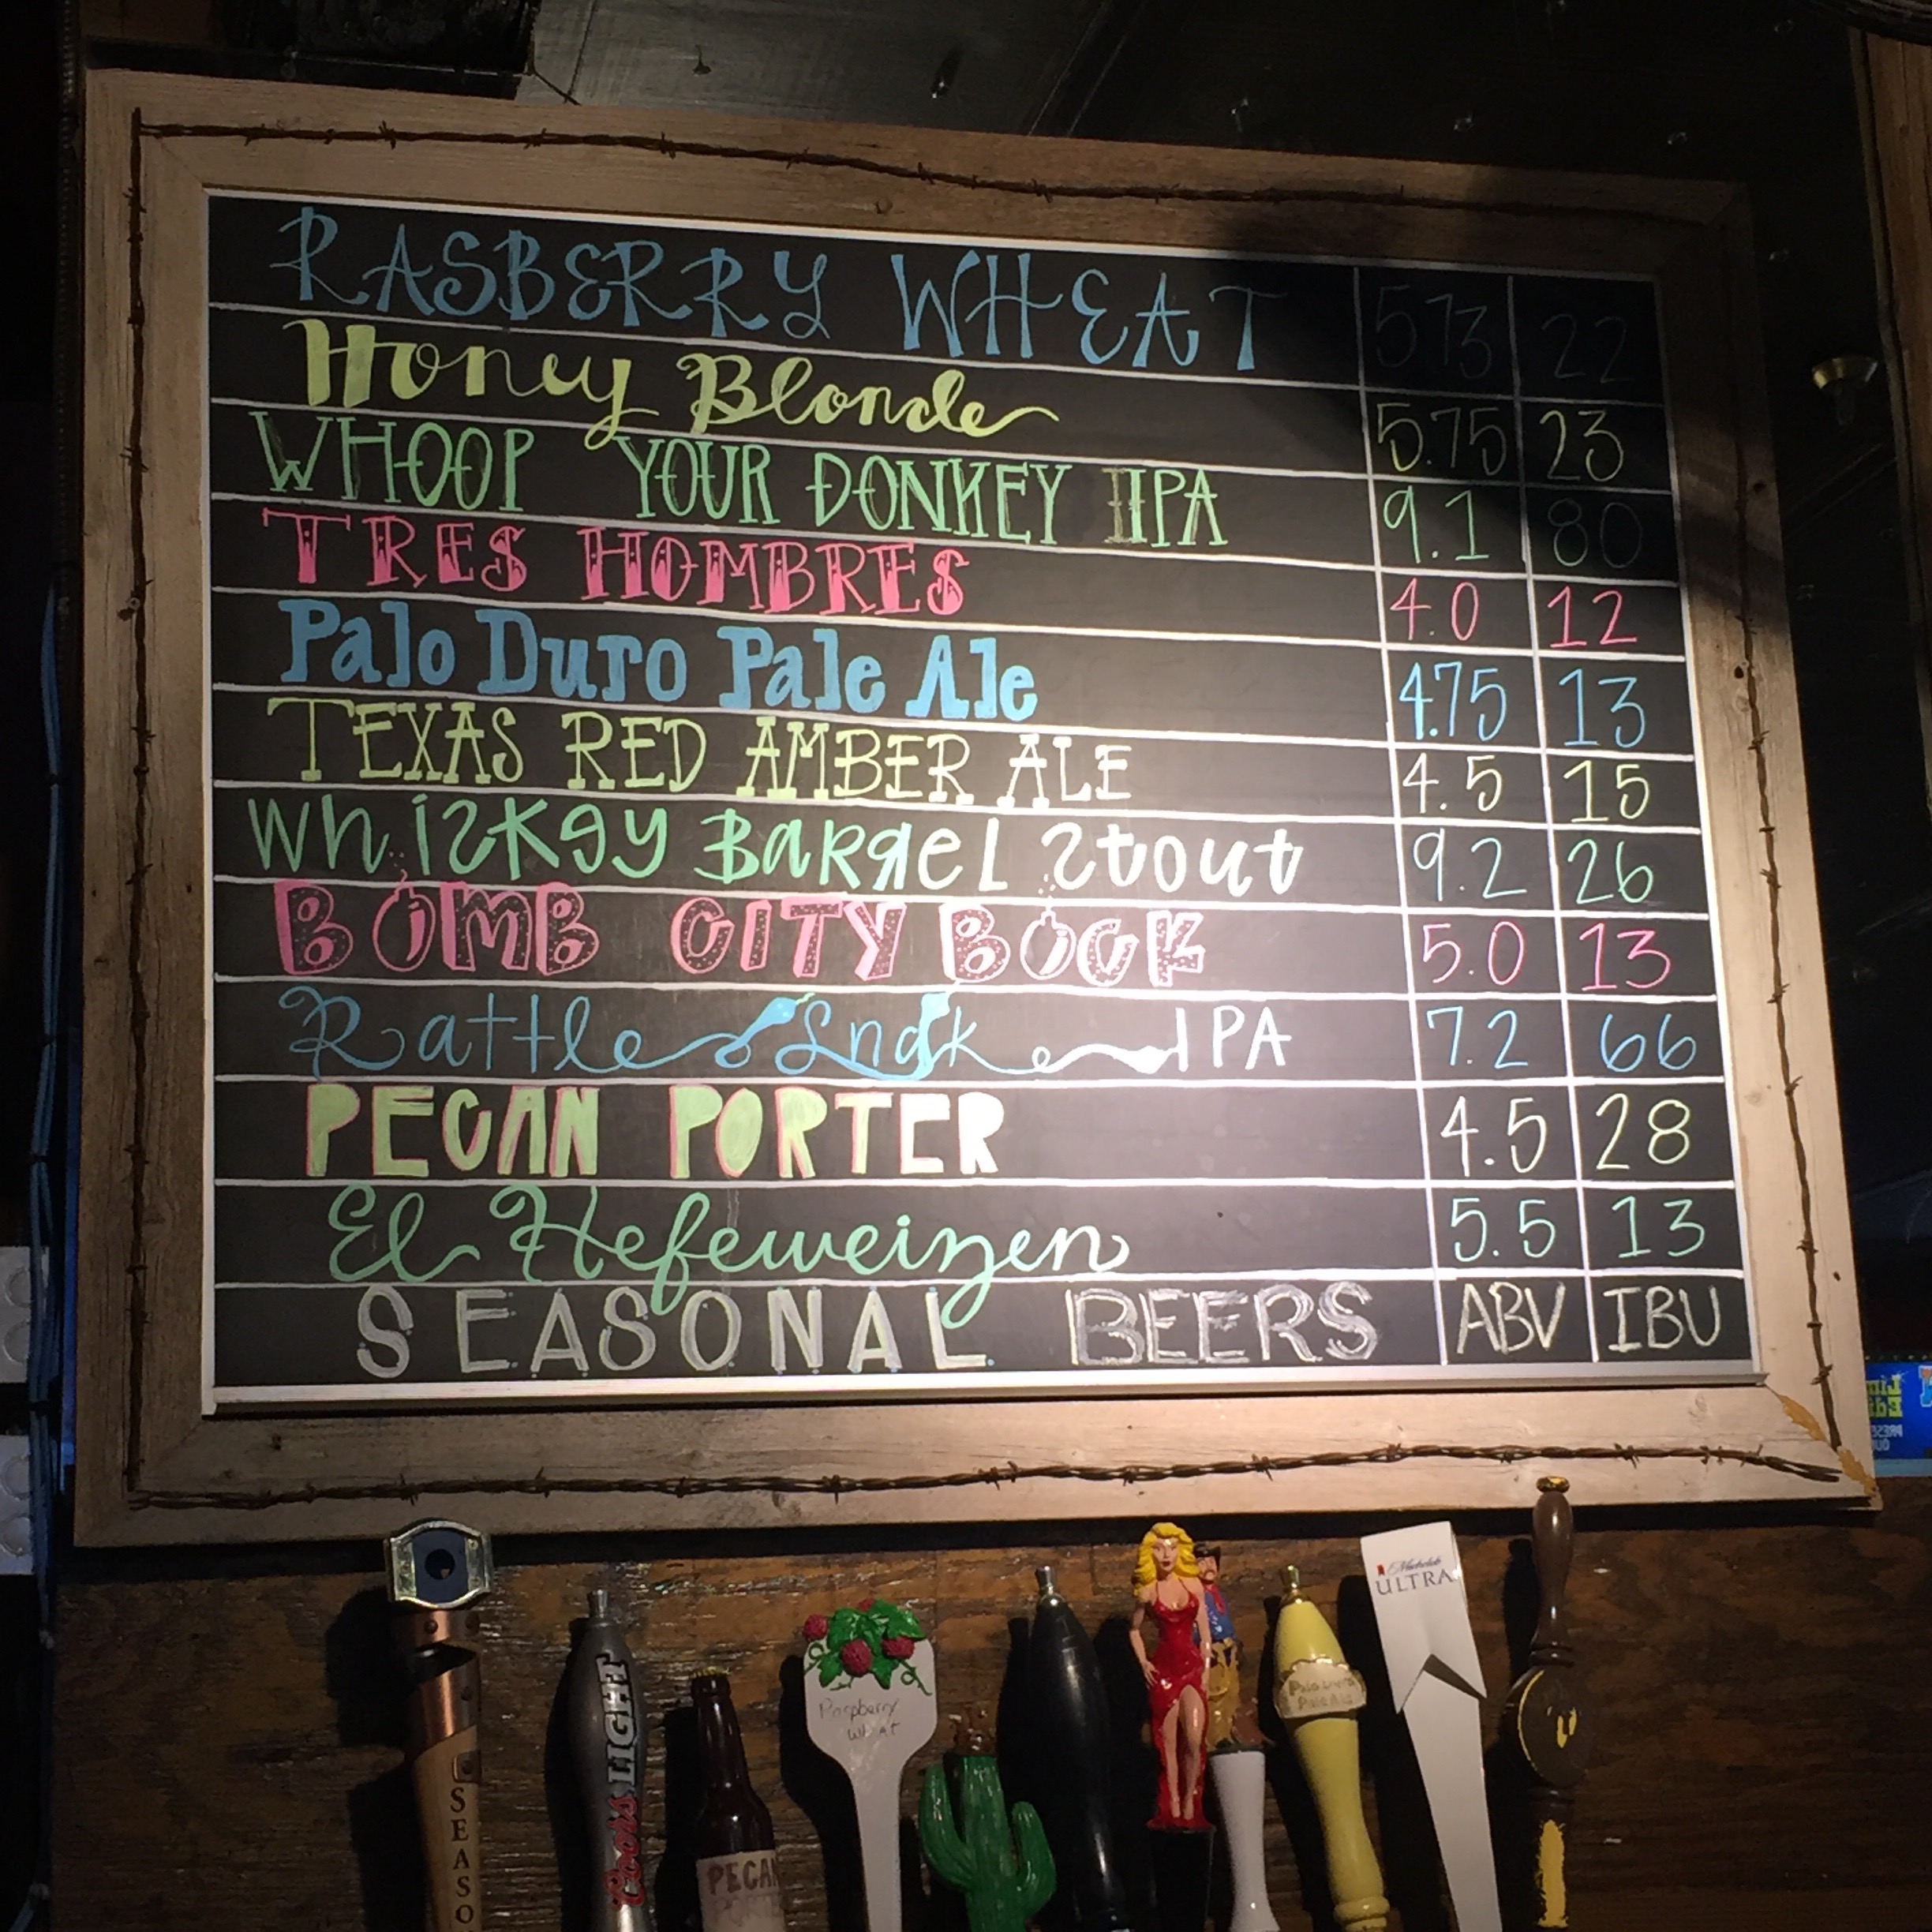 RASBERRY WHEAT 573 22
Honey Blonde 5.75 23
WHOOP YOUR DONKEY IIPA 9.1 80
TRES HOMBRES 4.0 12
Palo Duro Pale Ale 4.75 13
TEXAS RED AMBER ALE 4.5 15
Whiskey Barrel Stout 9.2 26
BOMB CITY BOCK 5.0 13
Rattle Snak e IPA 7.2 66
PECAN PORTER 4.5 28
El Hefeweizen 5.5 13
SEASONAL BEERS ABV IBU
Michelob
ULTRA
Coors LIGHT
Raspberry
Wheat
Palo Duro
Pale Ale
SEASO
PECAN